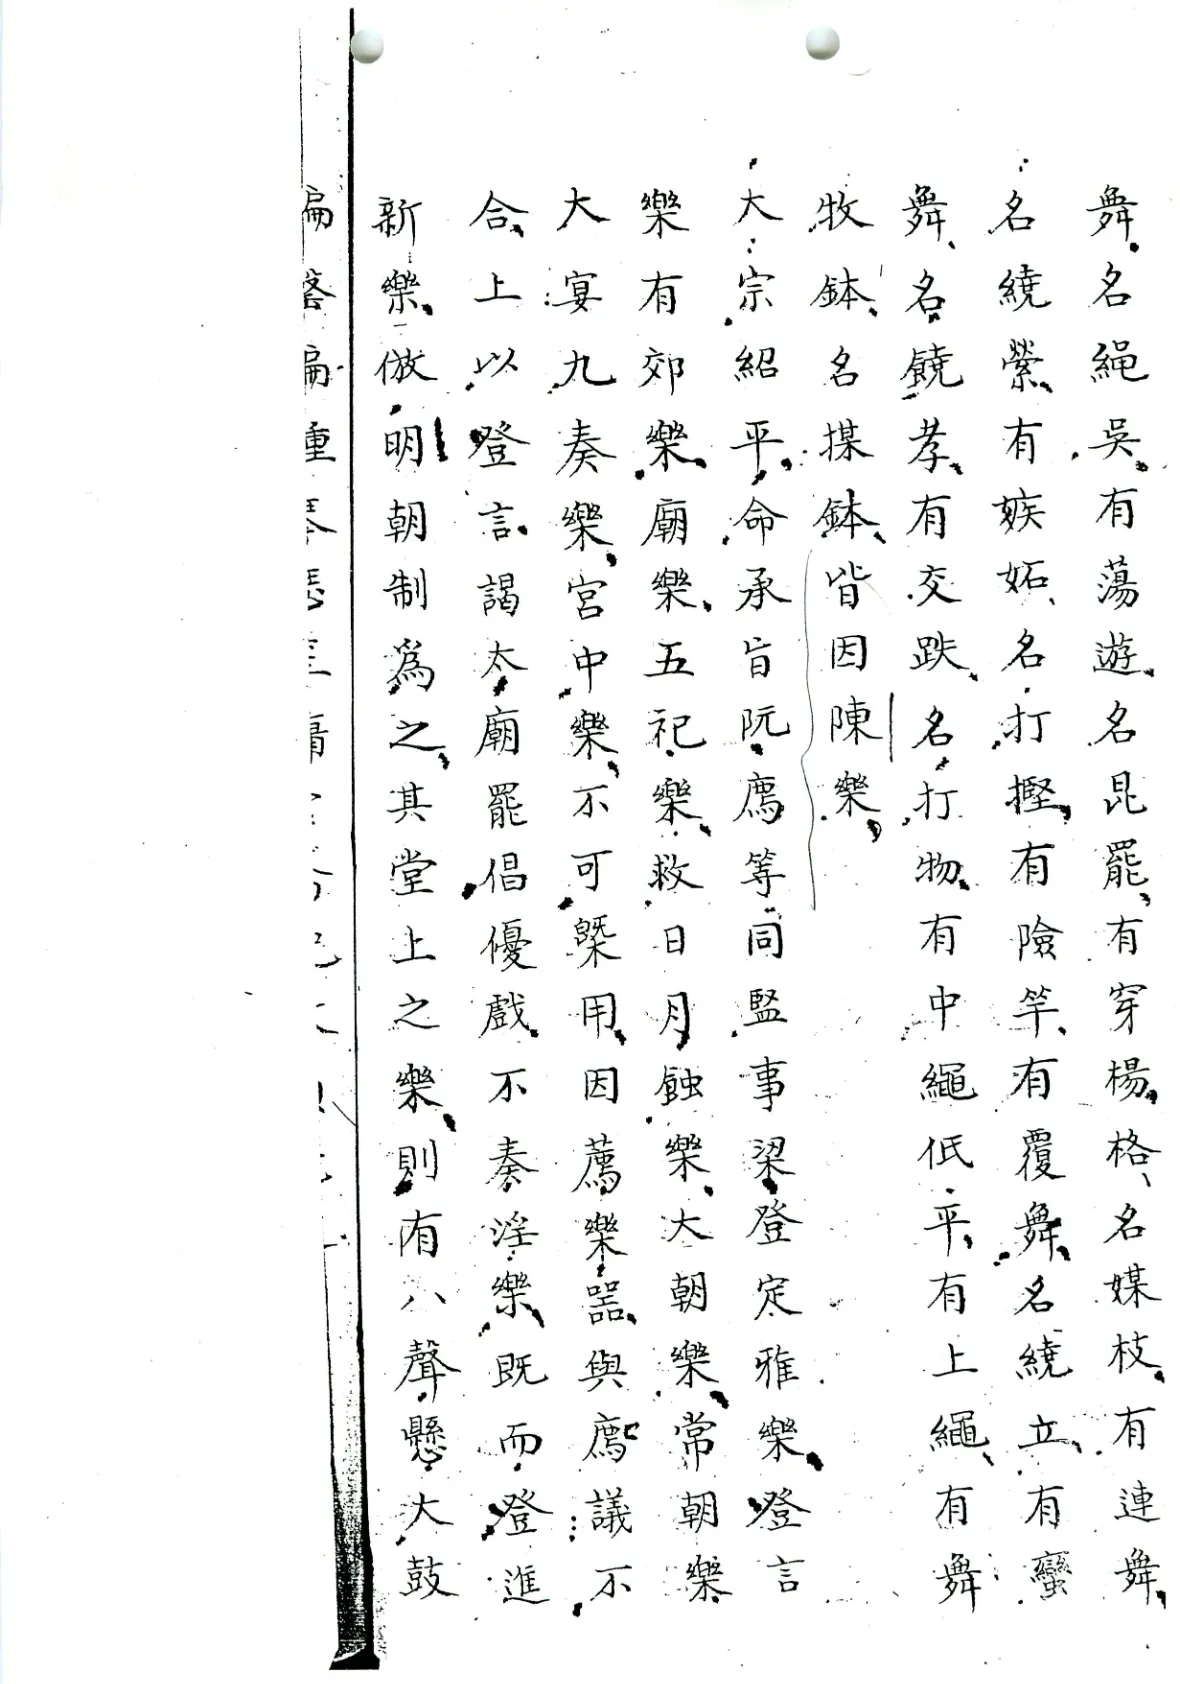 舞名䋲吳有蕩遊名昆罷有穿楊格名媒枝有連舞
名繞縈有嫉妬名打摼有險竿有覆舞名繞立有蠻
舞名饒孝有交跌名打物有中繩低平有上繩有舞
牧鉢名揲鉢皆因陳樂
大宗紹平命承旨阮廌等同監事梁登定雅樂登言
樂有郊樂廟樂五祀樂救日月蝕樂大朝樂常朝樂
大宴九奏樂宮中樂不可槩用因薦樂噐與廌議不
合上以登言謁太廟罷倡優戲不奏淫樂既而登進
新樂倣明朝制爲之其堂上之樂則有八聲懸大鼓